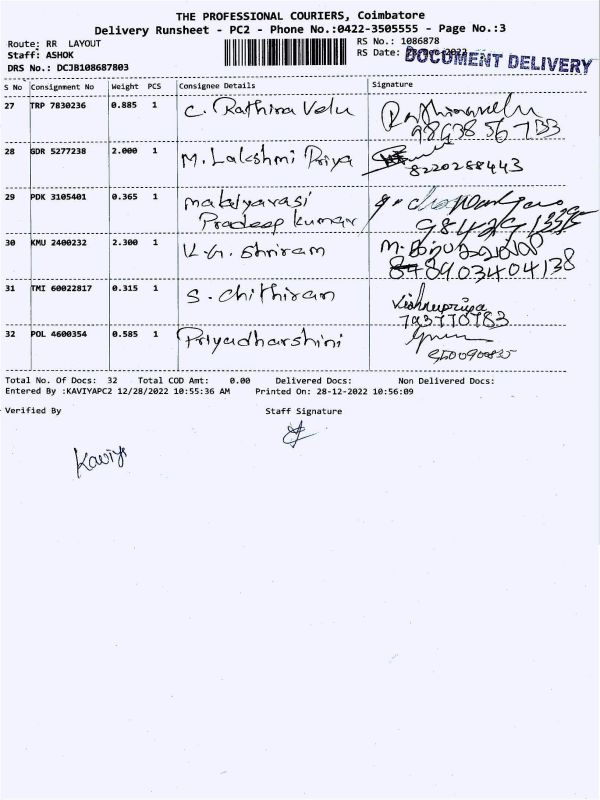 THE PROFESSIONAL COURIERS, Coimbatore
Delivery Runsheet - PC2 - Phone No.:0422-3505555 - Page No.:3
Route: RR LAYOUT
RS No.: 1086878
Staff: ASHOK
RS Date: 28-Dec-2022
DOCUMENT DELIVERY
DRS No.: DCJB108687803
S No Consignment No Weight PCS Consignee Details Signature
27 TRP 7830236 0.885 1 C. Rathina Velu
28 GDR 5277238 2.000 1 M. Lakshmi Priya
8220288443
29 PDK 3105401 0.365 1 malaiyarasi
Pradeep kumar
30 KMU 2400232 2.300 1 K.G. Shriram
8903404138
31 TMI 60022817 0.315 1 S. Chithiram
Vishnupriya
32 POL 4600354 0.585 1 Priyadharshini
Total No. Of Docs: 32 Total COD Amt: 0.00 Delivered Docs: Non Delivered Docs:
Entered By :KAVIYAPC2 12/28/2022 10:55:36 AM Printed On: 28-12-2022 10:56:09
Verified By Staff Signature
Kaviya